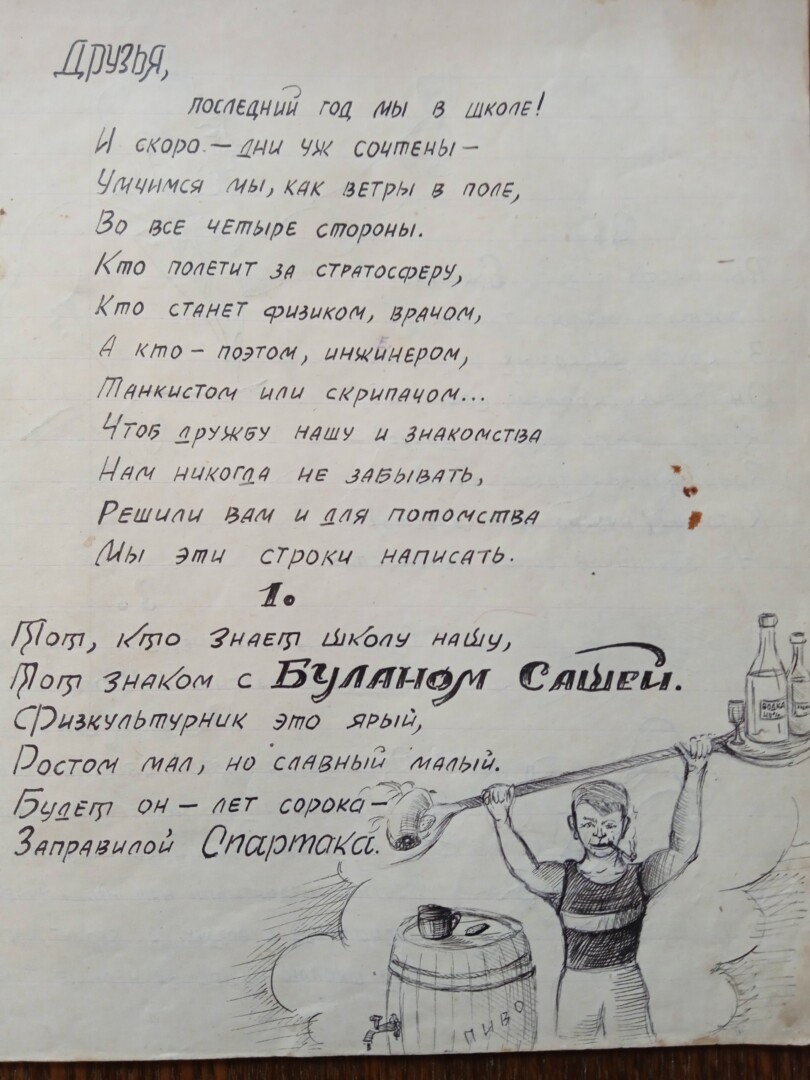 Друзья,
последний год мы в школе!
И скоро – дни уж сочтены –
Умчимся мы, как ветры в поле,
Во все четыре стороны.
Кто полетит за стратосферу,
Кто станет физиком, врачом,
А кто – поэтом, инженером,
Танкистом или скрипачом...
Чтоб дружбу нашу и знакомства
Нам никогда не забывать,
Решили вам и для потомства
Мы эти строки написать.
1.
Тот, кто знает школу нашу,
Тот знаком с Буланом Сашей.
Физкультурник это ярый,
Ростом мал, но славный малый.
Будет он – лет сорока –
Заправилой Спартака.
Водка
Пиво